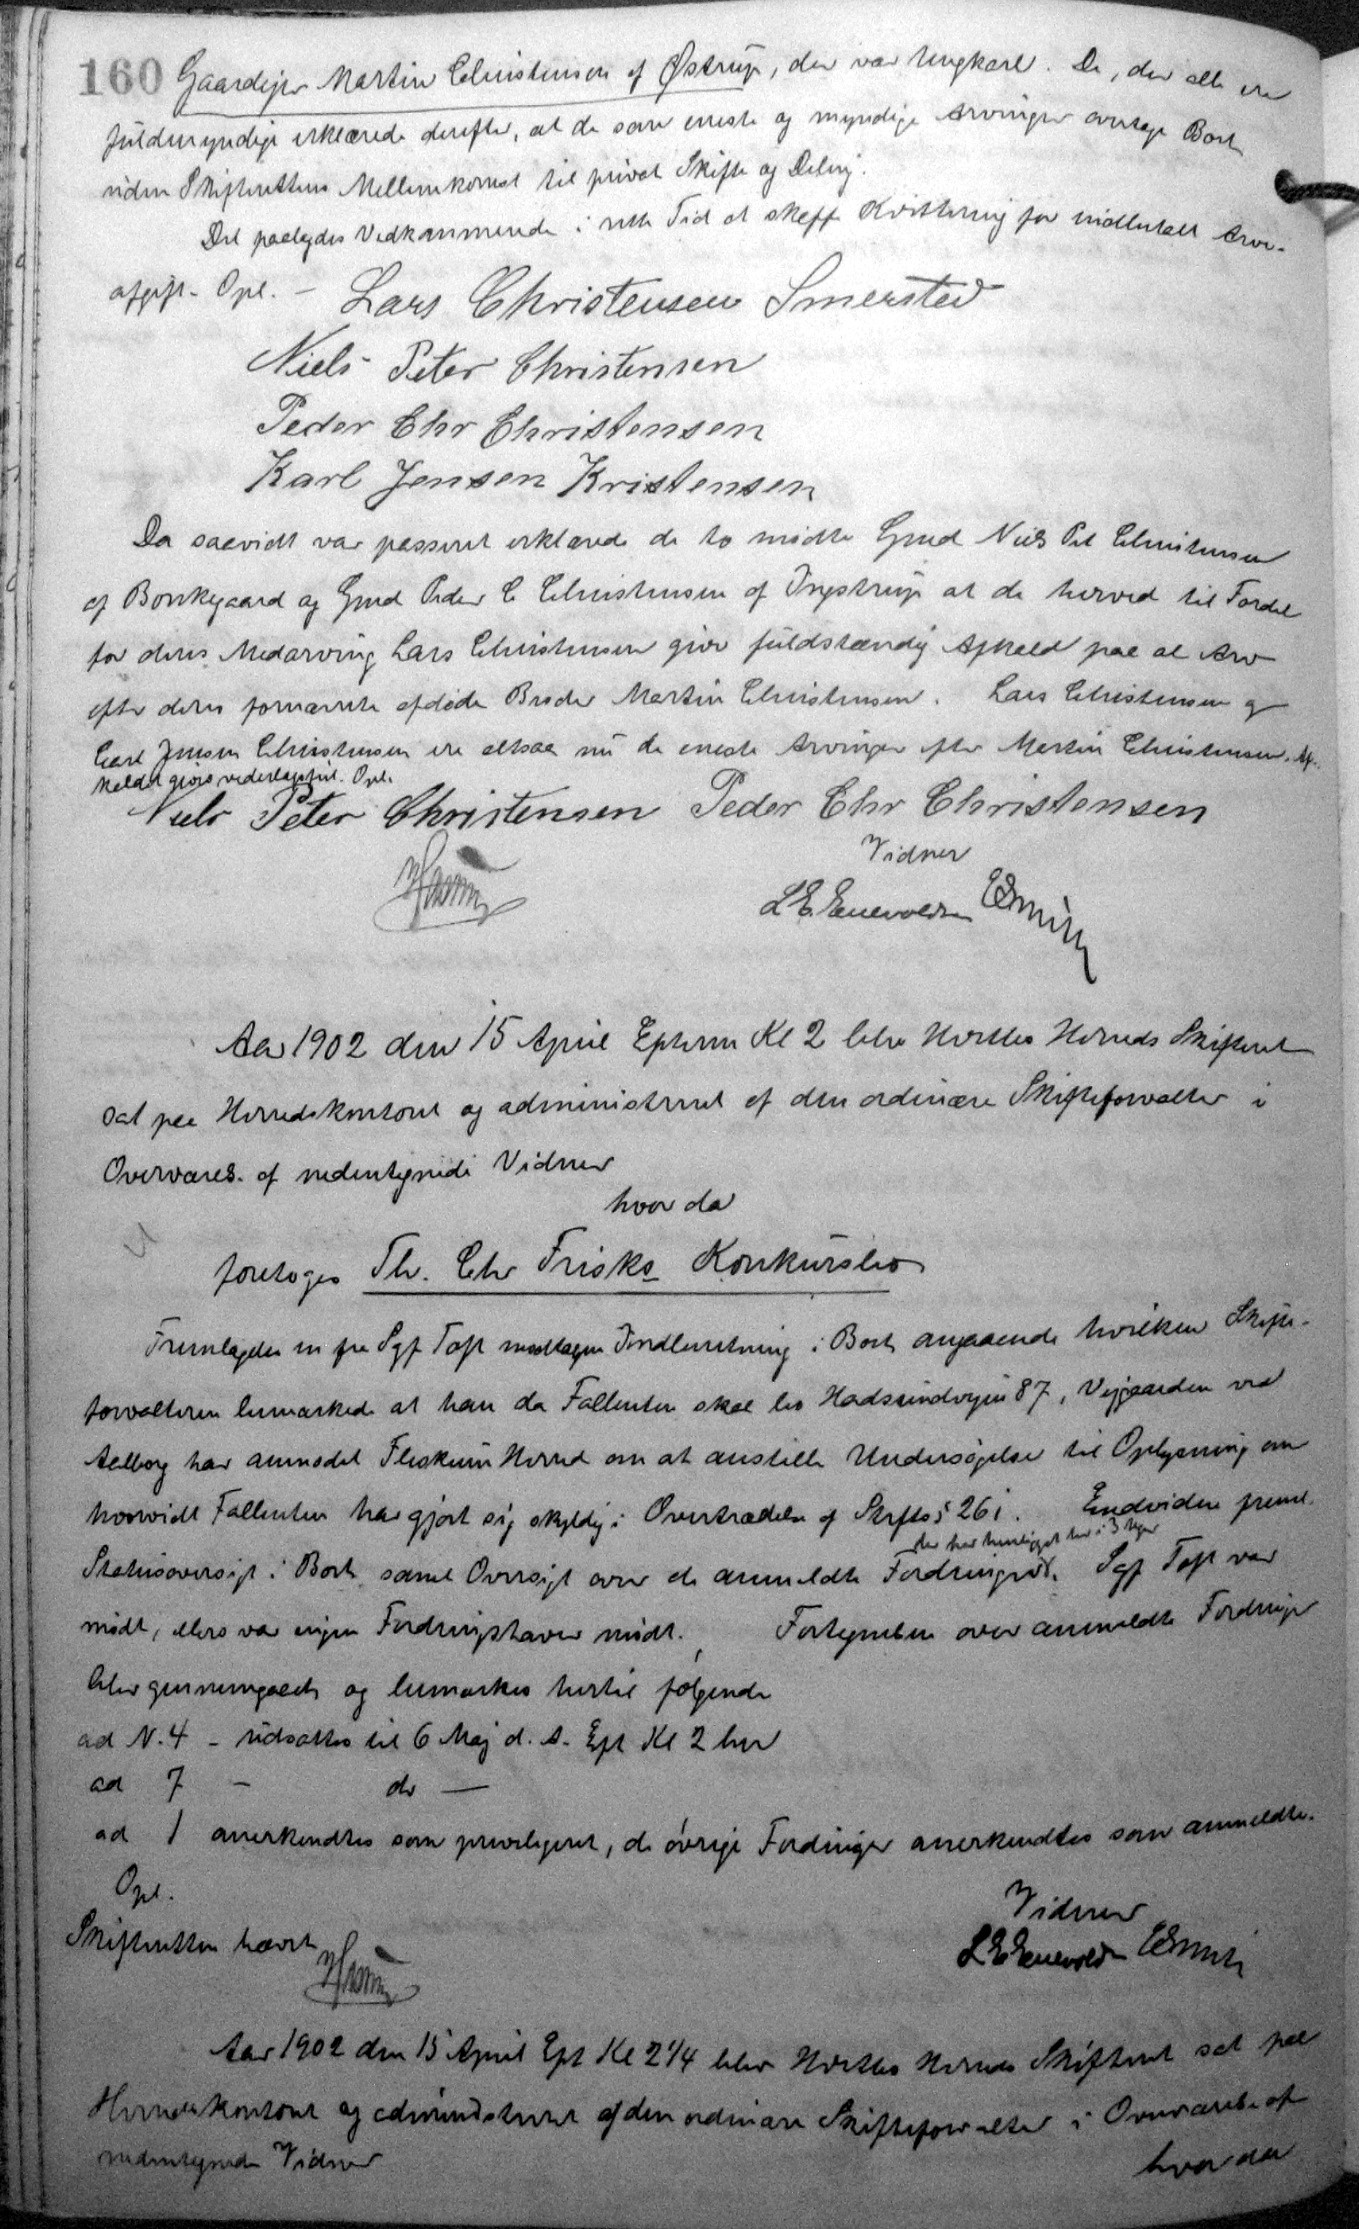 160 Gaardejer Martin Christensen af Østrup, der var Ungkarl. De, der alle ere
fuldmyndige erklærede derefter, at de som eneste og myndige Arvinger overtage Boet
uden Skifterettens Mellemkomst til privat Skifte og Deling.
Det paalagdes Vedkommende i rette Tid at skaffe Kvittering for indbetalt Arve-
afgift. Opl. —
Lars Christensen Smersted
Niels Peter Christensen
Peder Chr Christensen
Karl Jensen Kristensen
Da saavidt var passeret erklærede de to mødte Gmd Niels Pet Christensen
af Bonkegaard og Gmd Peder C Christensen af Ingstrup at de herved til Fordel
for deres Medarving Lars Christensen give fuldstændig Afkald paa al Arv
efter deres fornævnte afdøde Broder Martin Christensen. Lars Christensen og
Carl Jensen Christensen ere altsaa nu de eneste Arvinger efter Martin Christensen. Af-
kaldet gives vederlagsfrit. Opl.
Niels Peter Christensen Peder Chr Christensen
Vidner
L E Enevoldsen
Aar 1902 den 15 April Efterm Kl 2 blev Hvetbo Herreds Skifteret
sat paa Herredskontoret og administreret af den ordinære Skifteforvalter i
Overværelse af nedentegnede Vidner
hvor da
foretoges Th. Chr Frisks Konkursbo
Fremlagdes en fra Sgf Toft modtagen Indberetning i Boet angaaende hvilken Skifte-
forvalteren bemærkede at han da Fallenten skal bo Hadsundvejen 87, Vejgaarden ved
Aalborg har anmodet Fleskum Herred om at anstille Undersøgelse til Oplysning om
hvorvidt Fallenten har gjort sig skyldig i Overtrædelse af Strfls § 261. Endvidere freml.
der har henligget her i 3 Uger
Statusoversigt i Boet samt Oversigt over de anmeldte Fordringer. Sgf Toft var
mødt, ellers var ingen Fordringshaver mødt. Fortegnelsen over anmeldte Fordringer
blev gennemgaaet og bemærkes hertil følgende
ad N. 4 - udsattes til 6 Maj d. A. Eft Kl 2 her
ad 7 - do —
ad 1 anerkendtes som privilegeret, de øvrige Fordringer anerkendtes som anmeldte.
Opl.
Skifteretten hævet
Vidner
L E Enevoldsen
Aar 1902 den 15 April Eft Kl 2 1/4 blev Hvetbo Herreds Skifteret sat paa
Herredskontoret og administreret af den ordinære Skifteforvalter i Overværelse af
nedentegnede Vidner
hvor da